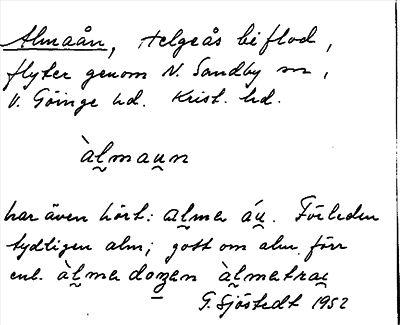 Almaån, Helgeås biflod,
flyter genom N. Sandby sn,
V. Göinge hd. Krist. hd.
àl̰maṵn
har även hört: al̰ma áṵ. Förleden
tydligen alm; gott om alm förr
enl. àl̰madoz̰an àl̰matraḛ
G. Sjöstedt 1952